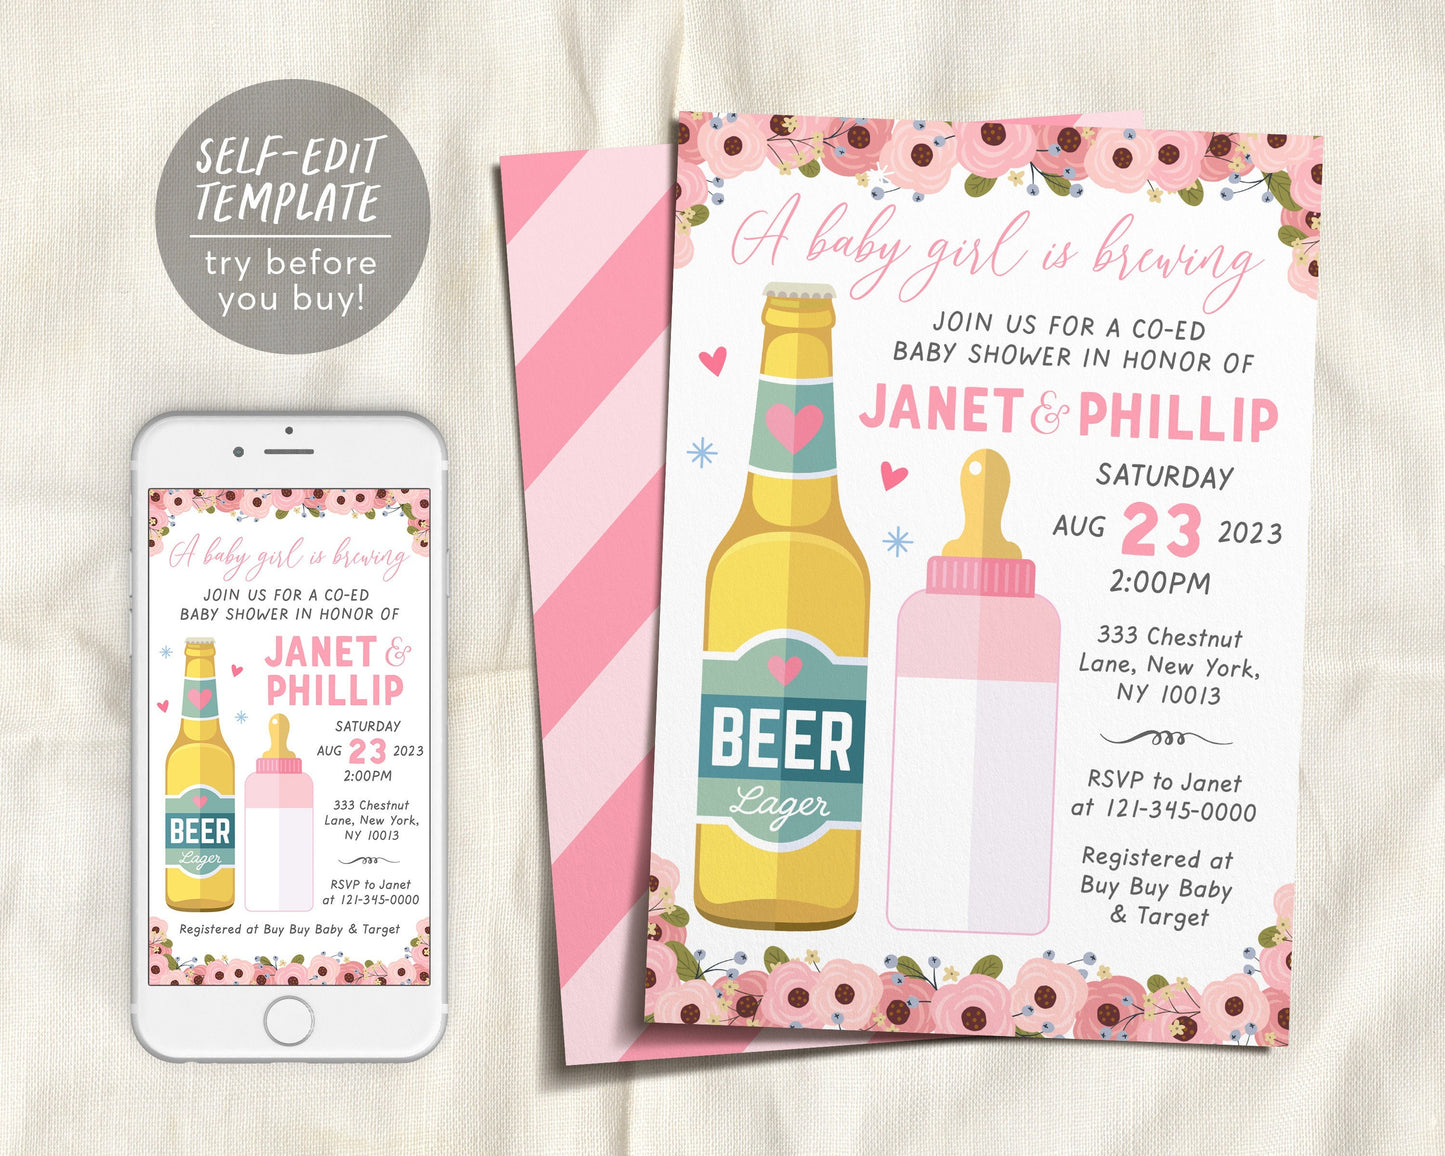 SELF-EDIT
TEMPLATE
try before
you buy!
A baby girl is brewing
JOIN US FOR A CO-ED
BABY SHOWER IN HONOR OF
JANET &
PHILLIP
SATURDAY
AUG 23 2023
2:00PM
333 Chestnut
Lane, New York,
NY 10013
RSVP to Janet
at 121-345-0000
Registered at Buy Buy Baby & Target
BEER
Lager
A baby girl is brewing
JOIN US FOR A CO-ED
BABY SHOWER IN HONOR OF
JANET & PHILLIP
SATURDAY
AUG 23 2023
2:00PM
333 Chestnut
Lane, New York,
NY 10013
RSVP to Janet
at 121-345-0000
Registered at
Buy Buy Baby
& Target
BEER
Lager